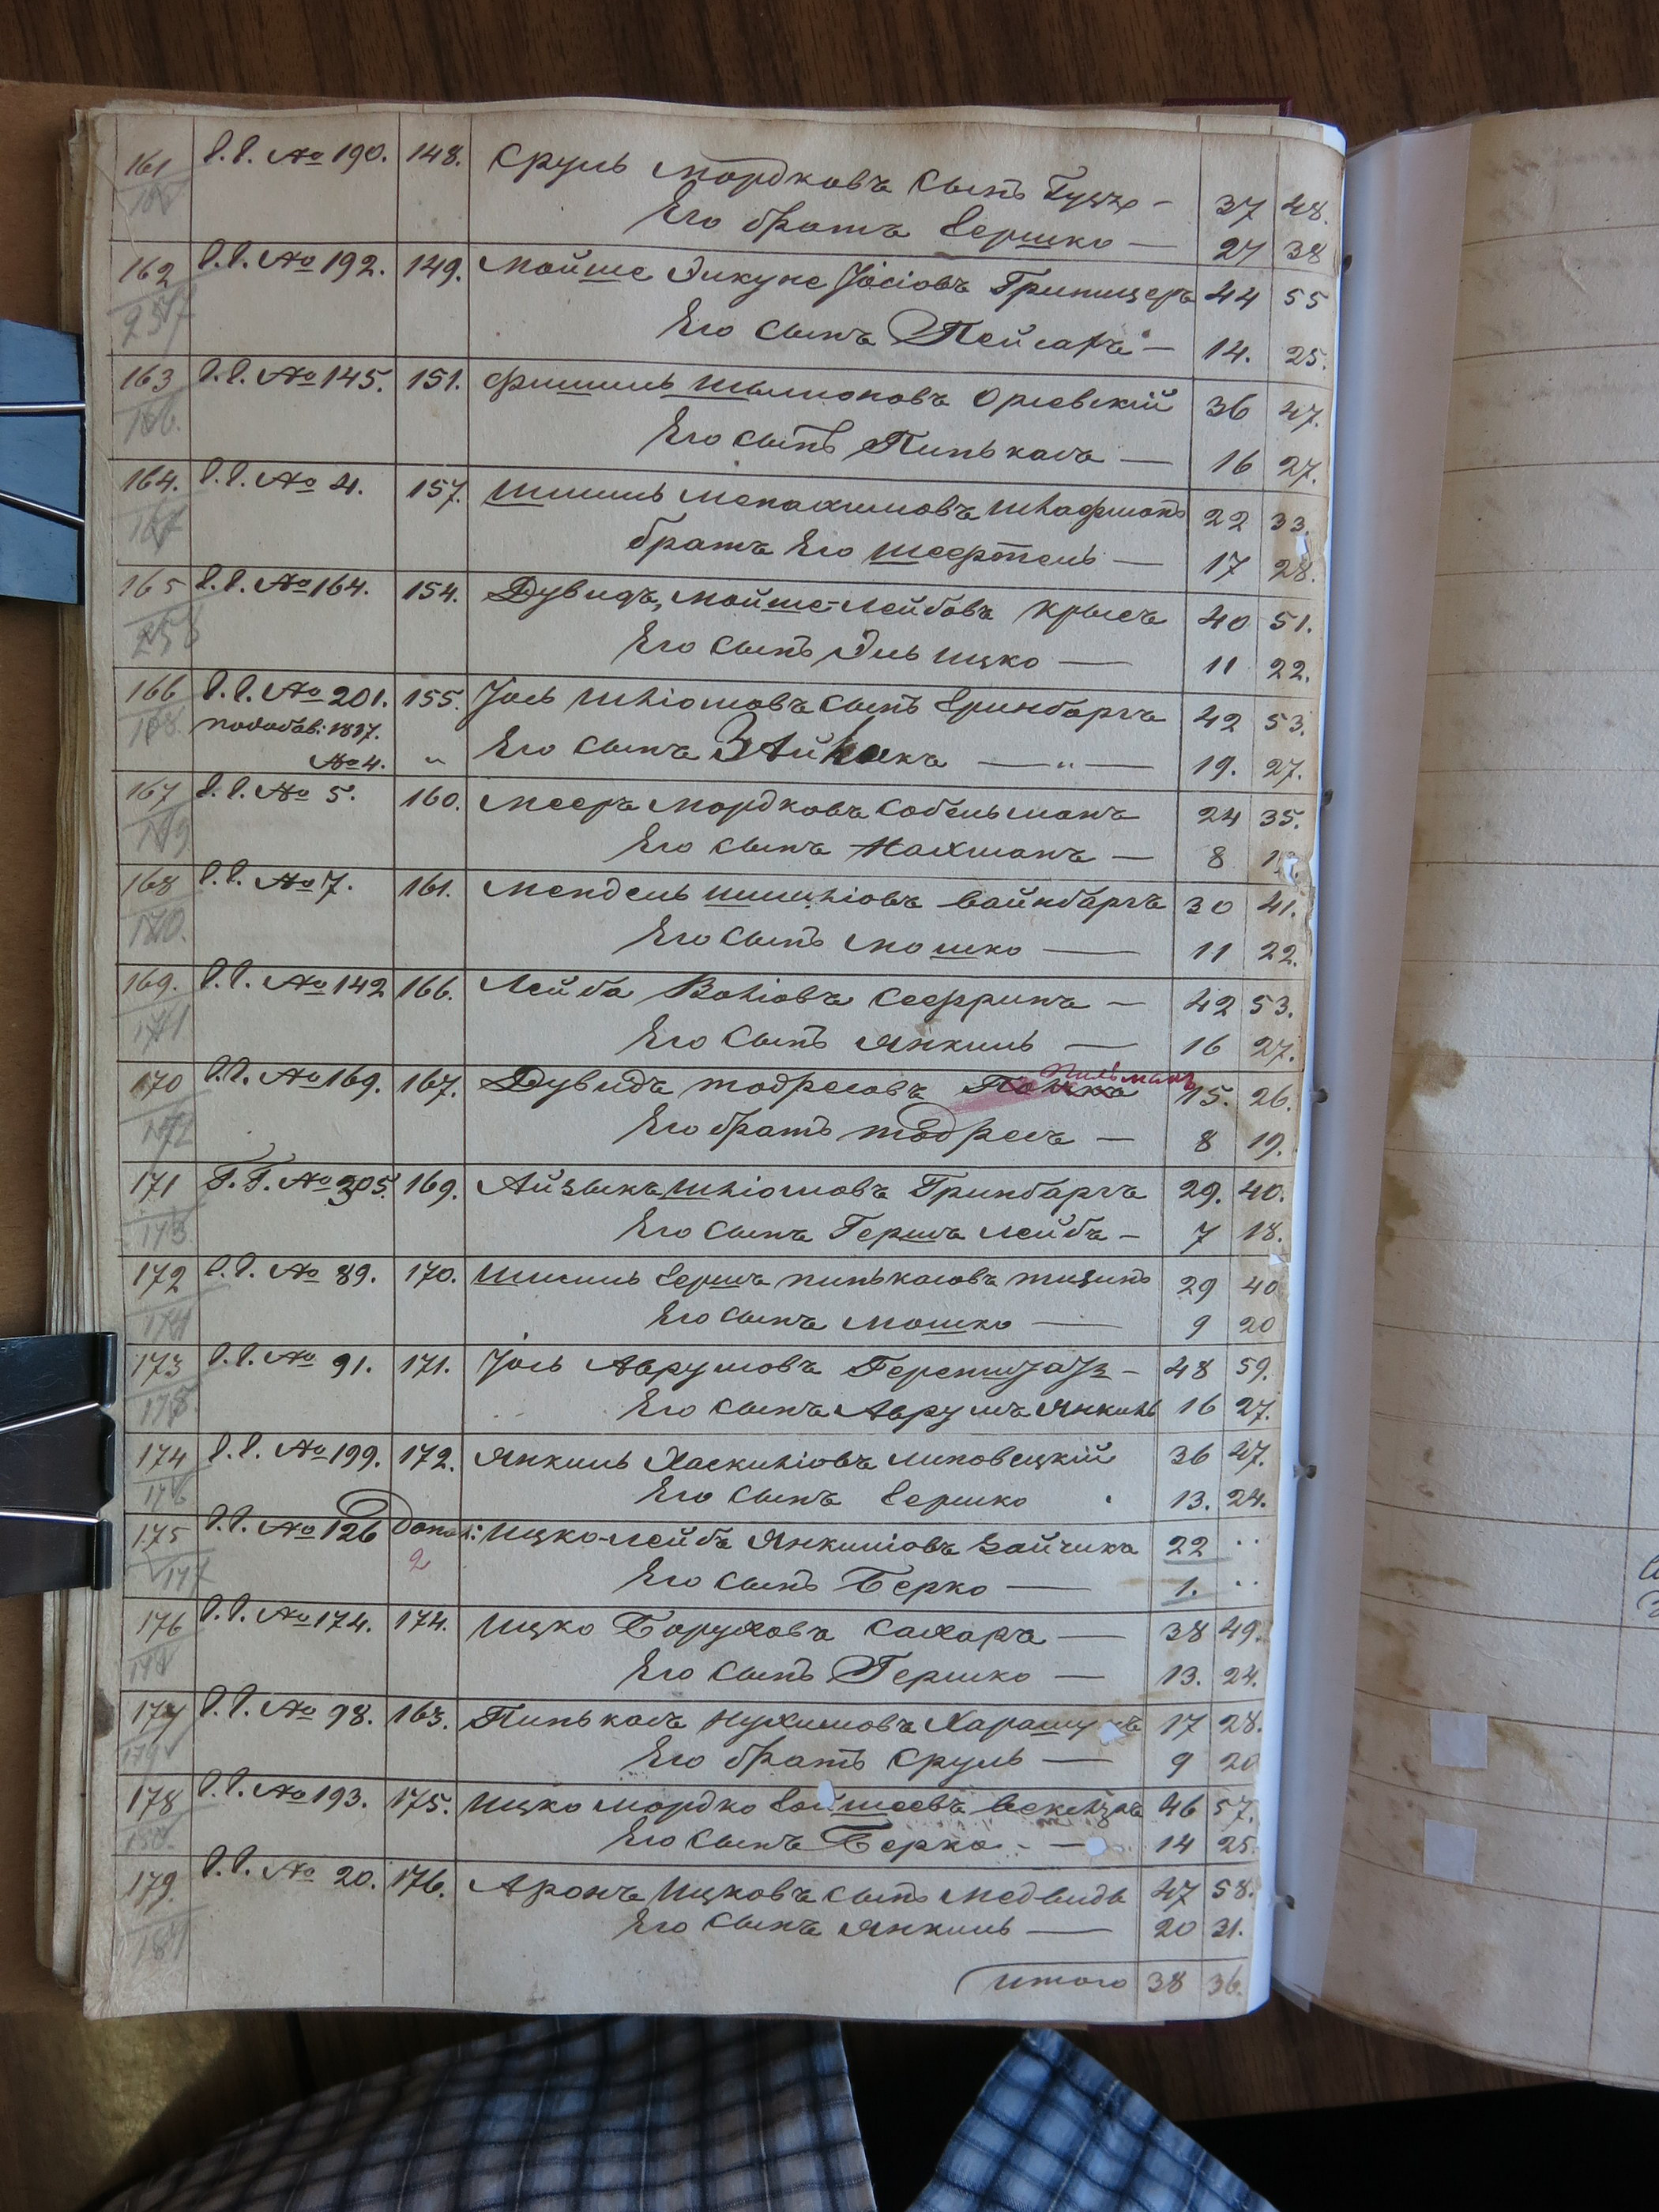 161 г. г. № 190. 148. Сруль Мордковъ сынъ Гуцъ - 37 48.
Его братъ Гершко — 27 38
162 г. г. № 192. 149. Мойше Эикуне Іосіовъ Грипщеръ 44 55
257 Его сынъ Пейсахъ — 14. 25.
163 г. г. № 145. 151. Фишель Шлионовъ Оргевскій 36 47.
166. Его сынъ Пинькасъ — 16 27.
164. г. г. № 4. 157. Шмиль Менахимовъ Шкафманъ 22 33.
167 братъ Его Шефтель — 17 28.
165 г. г. № 164. 154. Дувидъ, Мойше-Лейбовъ Крысъ 40 51.
258 Его сынъ Эль Ицко — 11 22.
166 г. г. № 201. 155. Іось Шліомовъ сынъ Гринбаргъ 42 53.
168 по добав: 1837. № 4. „ Его сынъ Айзикъ — „ — 19. 27.
167 г. г. № 5. 160. Мееръ Мордковъ Собельманъ 24 35.
169 Его сынъ Нахманъ — 8
168 г. г. № 7. 161. Мендель Шмиліовъ Вайнбаргъ 30 41.
170. Его сынъ Мошко — 11 22.
169. г. г. № 142 166. Лейба Волiовъ Сефринъ — 42 53.
171 Его сынъ Янкиль — 16 27.
170 г. г. № 169. 167. Дувидъ Тодресовъ Пильманъ 15. 26.
172 Его братъ Тодресъ — 8 19.
171 Г. Г. № 205. 169. Айзыкъ Шліомовъ Гринбаргъ 29. 40.
173 Его сынъ Гершъ Лейбъ - 7 18.
172 г. г. № 89. 170. Шмиль Гершъ Пинькасовъ 29 40
174 Его сынъ Мошко — 9 20
173 г. г. № 91. 171. Іось Аврумовъ Геренштаузъ - 48 59.
175 Его сынъ Аврумъ Янкиль 16 27.
174 г. г. № 199. 172. Янкиль Хаскиліовъ Липовецкій 36 47.
176 Его сынъ Гершко 13. 24.
175 г. г. № 126 Допол: Ицко-Лейбъ Янкиліовъ Зайчикъ 22 ..
177 2 Его сынъ Берко — 1. ..
176 г. г. № 174. 174. Ицко Боруховъ Сахаръ — 38 49.
178 Его сынъ Гершко — 13. 24.
177 г. г. № 98. 163. Пинькасъ Нухимовъ 17 28.
179 Его братъ Сруль — 9 20
178 г. г. № 193. 175. Ицко Мордко 46 57.
180. Его сынъ Берко - — 14 25.
179. г. г. № 20. 176. Аронъ Ицковъ сынъ Медвидь 47 58.
181 Его сынъ Янкиль — 20 31.
Итого 38 36.